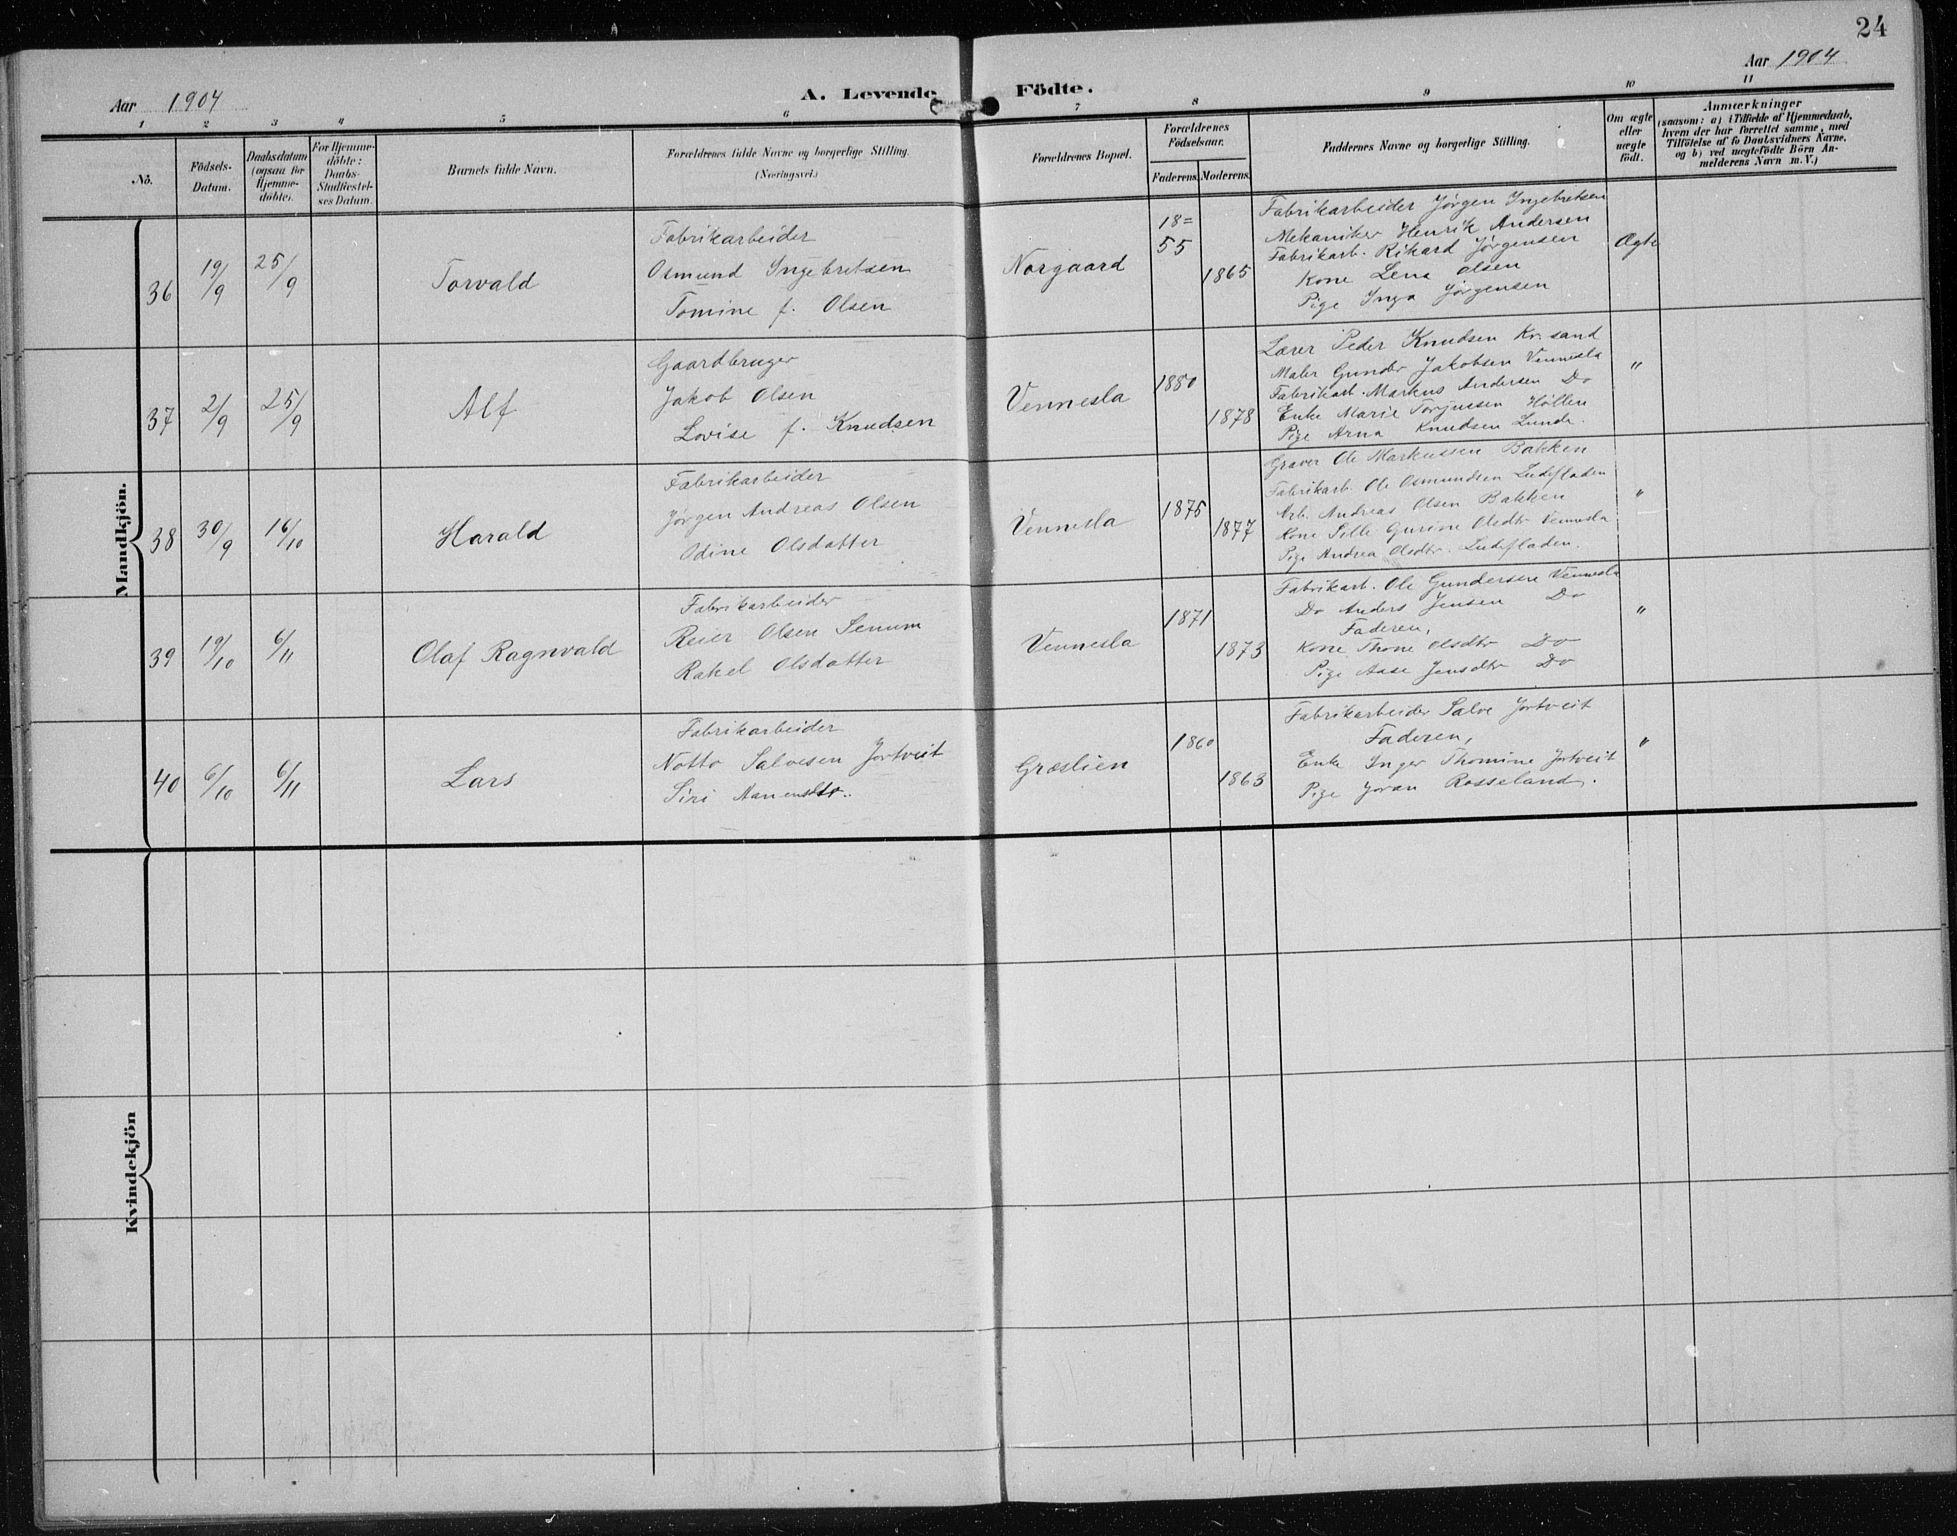 24
Aar 1904
A. Levende Födte.
Aar 1904
1 2 3 4 5 6 7 8 9 10 11
No.
Födsels-Datum.
Daabsdatum (ogsaa for Hjemme-döbte).
For Hjemme-döbte: Daabs-Stadfæstel-ses Datum.
Barnets fulde Navn.
Forældrenes fulde Navne og borgerlige Stilling.
(Næringsvei.)
Forældrenes Bopæl.
Forældrenes Födselsaar.
Faderens. Moderens.
Faddernes Navne og borgerlige Stilling.
Om ægte eller uægte födt.
Anmærkninger
(saasom: a) i Tilfælde af Hjemmedaab,
hvem der har forrettet samme, med
Tilföielse af to Daabsvidners Navne,
og b) ved uægtefödte Börn An-
melderens Navn m. V.)
Mandkjön.
36 19/9 25/9 Torvald
Fabrikarbeider
Osmund Ingebretsen
Tomine f. Olsen
Norgaard
18=
55
1865
Fabrikarbeider Jørgen Ingebretsen
Mekaniker Henrik Andersen
Fabrikarb. Rikard Jørgensen
Kone Lena Olsen
Pige Inga Jørgensen
Ægte
37 2/9 25/9 Alf
Gaardbruger
Jakob Olsen
Lovise f. Knudsen
Vennesla
1880
1878
Lærer Peder Knudsen Kr.sand
Maler Gunder Jakobsen Vennesla
Fabrikarb. Markus Andersen Do
Enke Marie Torjussen Høllen
Pige Arna Knudsen Lunde.
"
38 30/9 16/10 Harald
Fabrikarbeider
Jørgen Andreas Olsen
Odine Olsdatter
Vennesla
1875
1877
Graver Ole Markussen Bakken
Fabrikarb. Ole Osmundsen
Arb. Andreas Olsen Bakken
Kone Sille Gurine Olsdtr Vennesla
Pige Andrea Olsdtr.
"
39 19/10 6/11 Olaf Ragnvald
Fabrikarbeider
Reier Olsen Senum
Rakel Olsdatter
Vennesla
1871
1873
Fabrikarb. Ole Gundersen Vennesla
Do Anders Jensen Do
Faderen,
Kone Thone Olsdtr Do
Pige Aase Jensdtr Do
"
40 6/10 6/11 Lars
Fabrikarbeider
Notto Salvesen Jortveit
Siri Aanensdtr.
Græslien
1860
1863
Fabrikarbeider Salve Jortveit
Faderen,
Enke Inger Thomine Jortveit
Pige Joran Rosseland.
"
Kvindekjön